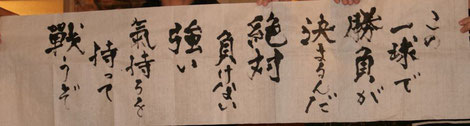 この
一球で
勝負が
決まるんだ
絶対
負けない
強い
氣持ちを
持って
戦うぞ